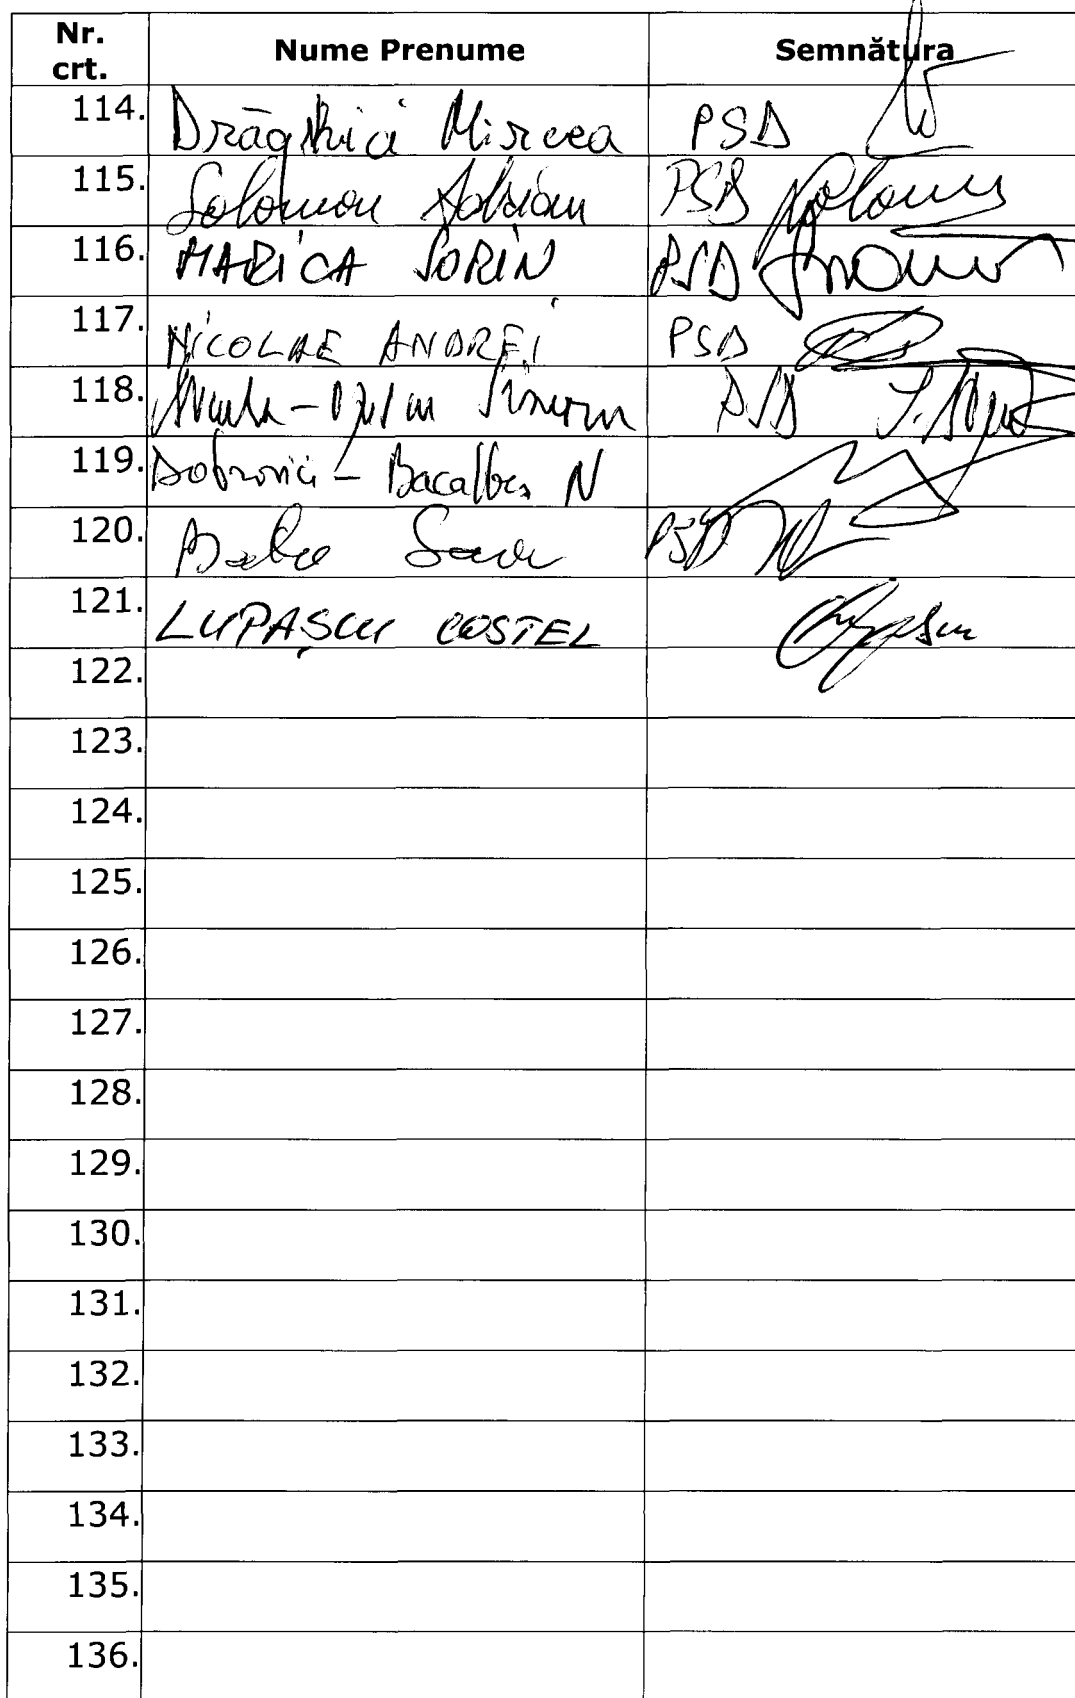 Nr. crt. Nume Prenume Semnătura
114. Drăghici Mircea PSD
115. Solomon Adrian PSD Solomon
116. MARICA SORIN PSD
117. NICOLAE ANDREI PSD
118. PSD
119. Dobrovici - Bacalbaș N
120. PSD
121. LUPAȘCU COSTEL
122.
123.
124.
125.
126.
127.
128.
129.
130.
131.
132.
133.
134.
135.
136.